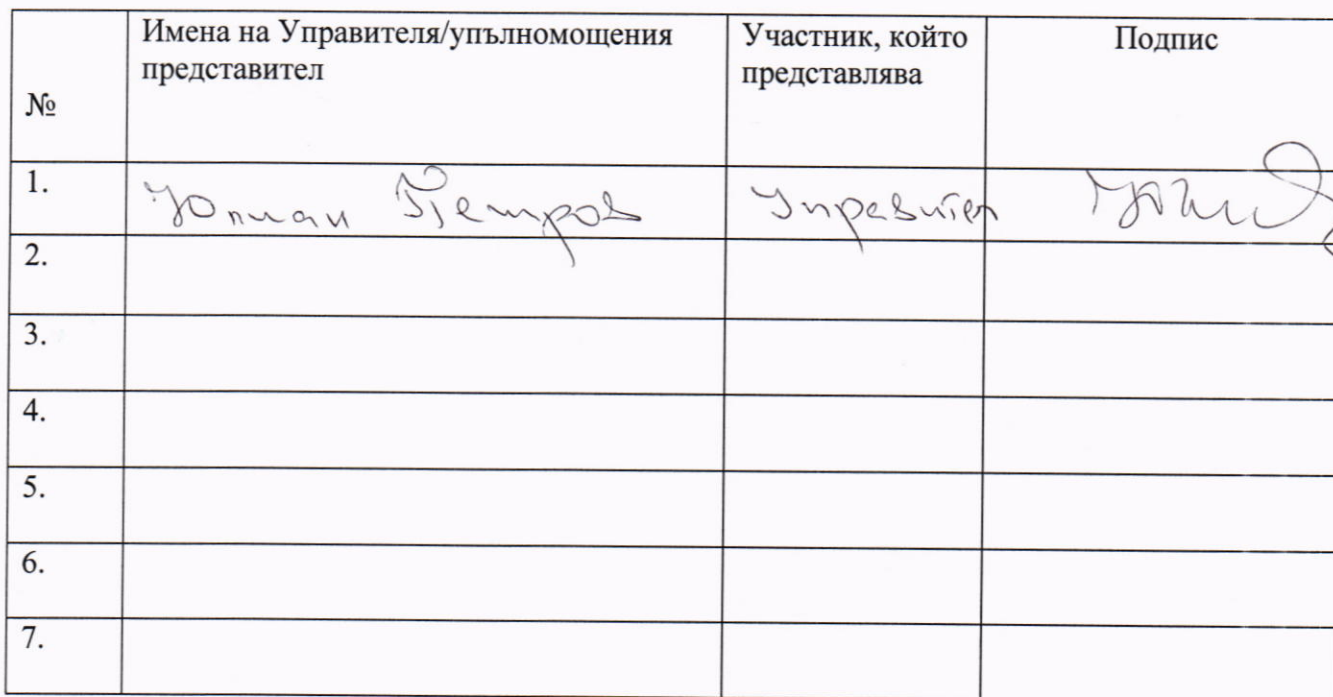 №
Имена на Управителя/упълномощения
представител
Участник, който
представлява
Подпис
1.
Юлиан Петров
Управител
2.
3.
4.
5.
6.
7.